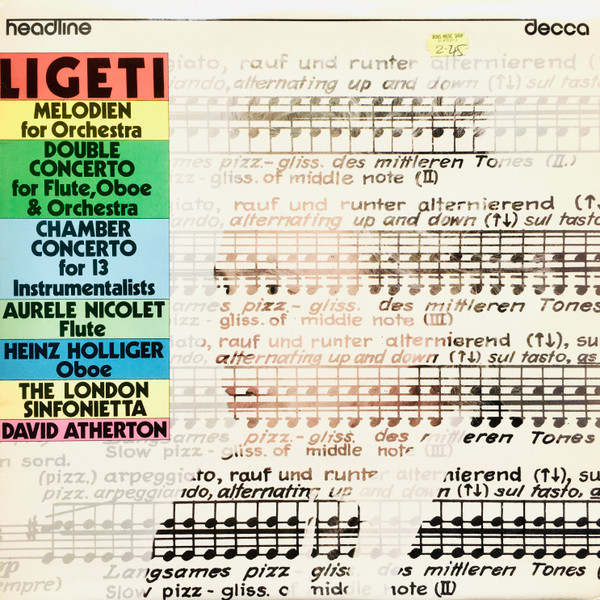 headline
decca
2.45
LIGETI
MELODIEN
for Orchestra
DOUBLE
CONCERTO
for Flute, Oboe
& Orchestra
CHAMBER
CONCERTO
for 13
Instrumentalists
AURELE NICOLET
Flute
HEINZ HOLLIGER
Oboe
THE LONDON
SINFONIETTA
DAVID ATHERTON
giato, rauf und runter alternierend (↑
ando, alternating up and down (↑↓) sul tasto
ames pizz.-gliss. des mittleren Tones (II.)
pizz.-gliss. of middle note (II)
ato, rauf und runter alternierend (↑
ando, alternating up and down (↑↓) sul tasto
ames pizz.-gliss. des mittleren Tones
pizz-gliss. of middle note (III)
ato, rauf und runter alternierend (↑↓), su
ando, alternating up and down (↑↓) sul tasto, as
Langsames pizz.-gliss. des mittleren Tones
Slow pizz-gliss. of middle note (III)
n sord.
(pizz.) arpeggiato, rauf und runter alternierend (↑↓), su
pizz. arpeggiando, alternating up and down (↑↓) sul tasto, a
pp
empre)
Langsames pizz-gliss. des mittleren Tones
Slow pizz-gliss. of middle note (II)